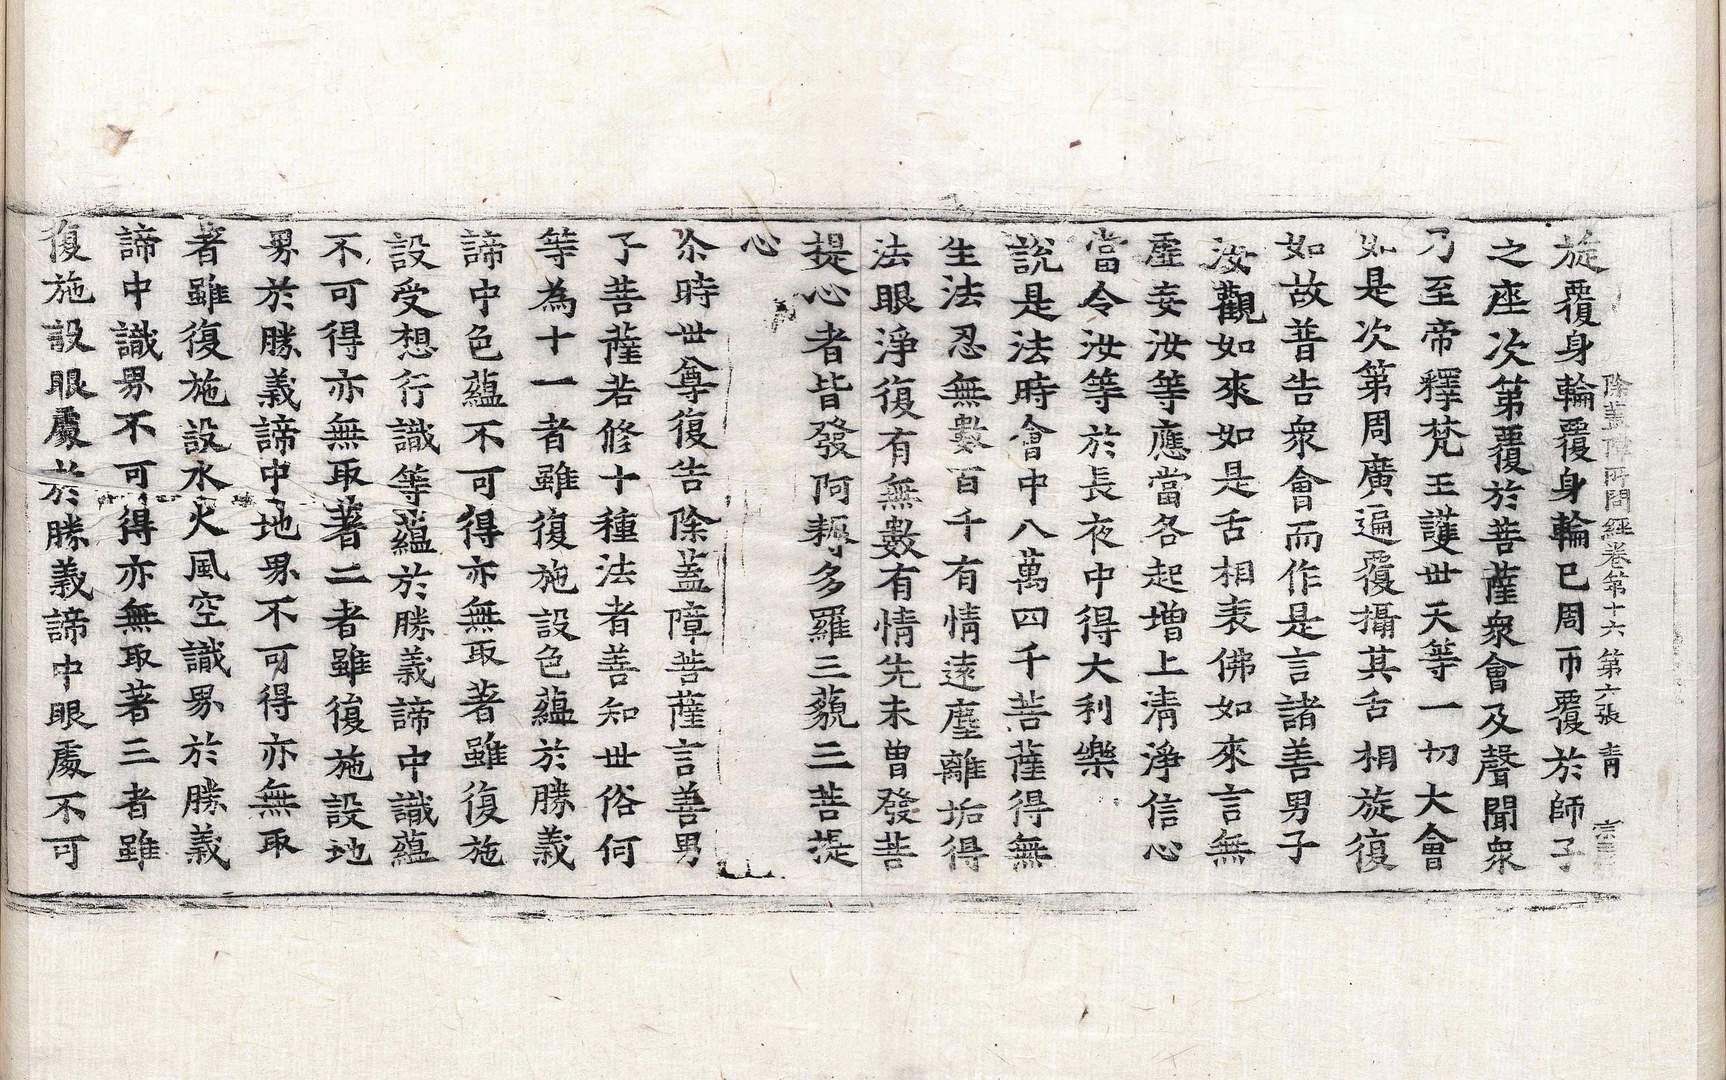 除蓋障所問經卷第十六 第六張 青
旋覆身輪覆身輪已周帀覆於師子
之座次第覆於菩薩衆會及聲聞衆
乃至帝釋梵王護世天等一切大會
如是次第周廣遍覆攝其舌相旋復
如故普告衆會而作是言諸善男子
汝觀如來如是舌相表佛如來言無
虛妄汝等應當各起增上清淨信心
當令汝等於長夜中得大利樂
說是法時會中八萬四千菩薩得無
生法忍無數百千有情遠塵離垢得
法眼淨復有無數有情先未曾發菩
提心者皆發阿耨多羅三藐三菩提
心
尒時世尊復告除蓋障菩薩言善男
子菩薩若修十種法者善知世俗何
等為十一者雖復施設色蘊於勝義
諦中色蘊不可得亦無取著雖復施
設受想行識等蘊於勝義諦中識蘊
不可得亦無取著二者雖復施設地
界於勝義諦中地界不可得亦無取
著雖復施設水火風空識界於勝義
諦中識界不可得亦無取著三者雖
復施設眼處於勝義諦中眼處不可